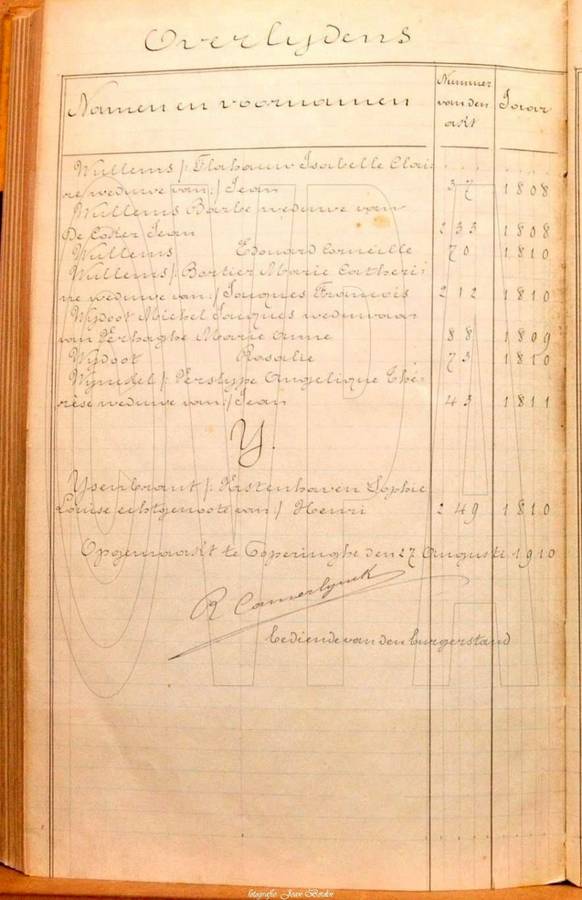 Overlijdens
Namen en voornamen
Nummer van den akt
Jaar
Wullems /: Flahauw Isabelle Clai-
re weduwe van :/ Jean 37 1808
Wullems Barbe weduwe van
De Codier Jean 233 1808
Wullems Edouard Corneille 70 1810
Wullems /: Bortier Marie Catheri-
ne weduwe van :/ Jacques François 212 1810
Wydoot Michel Jacques weduwaar
van Verhaghe Marie Anne 88 1809
Wydoot Rosalie 73 1810
Wyndel /: Verstype Angelique Thé-
rèse weduwe van :/ Jean 43 1811
Y.
Ysenbrant /: Kastenhaven Sophie
Louise echtgenoote van :/ Henri 249 1810
Opgemaakt te Poperinghe den 27 Augusti 1910
R Camerlynck
bediende van den burgerstand
fotografie: Jean Bordon